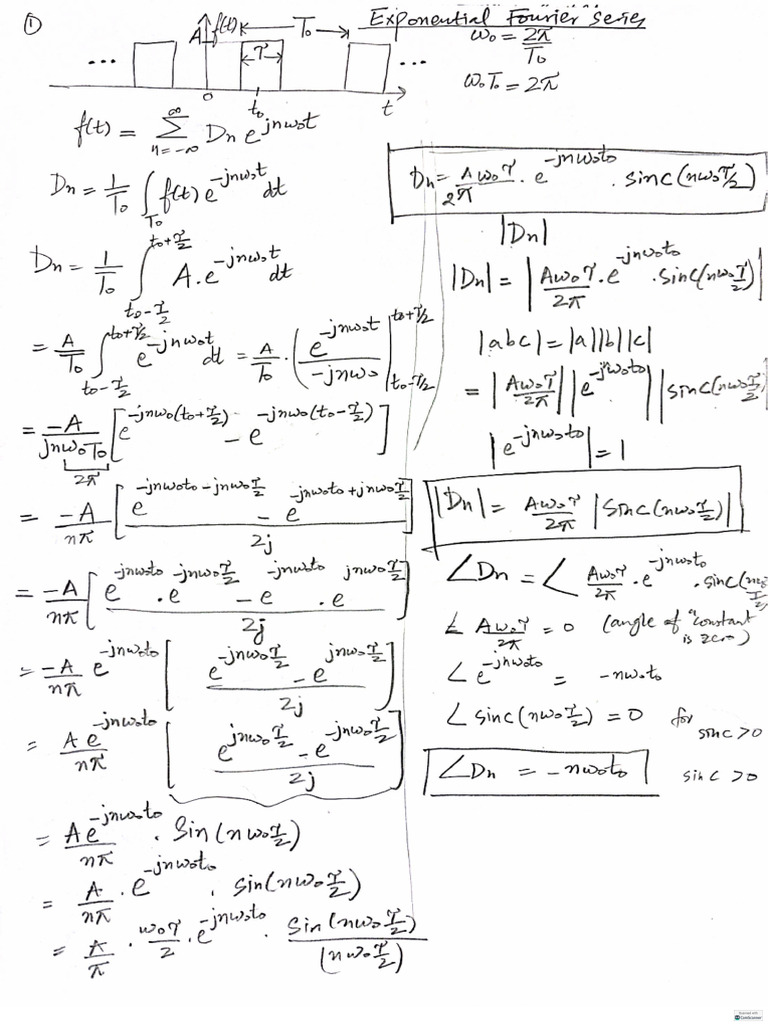 ① Exponential Fourier Series
f(t) T₀
A τ
... ...
0 t₀ t
ω₀ = 2π/T₀
ω₀T₀ = 2π
f(t) = ∑_{n=-∞}^{∞} Dn e^{jnω₀t}
Dn = 1/T₀ ∫_{T₀} f(t) e^{-jnω₀t} dt
Dn = 1/T₀ ∫_{t₀-τ/2}^{t₀+τ/2} A.e^{-jnω₀t} dt
= A/T₀ ∫_{t₀-τ/2}^{t₀+τ/2} e^{-jnω₀t} dt = A/T₀ · (e^{-jnω₀t}/-jnω₀ |_{t₀-τ/2}^{t₀+τ/2}
= -A/(jnω₀T₀) [e^{-jnω₀(t₀+τ/2)} - e^{-jnω₀(t₀-τ/2)}]
2π
= -A/nπ [(e^{-jnω₀t₀-jnω₀τ/2} - e^{-jnω₀t₀+jnω₀τ/2})/2j]
= -A/nπ [(e^{-jnω₀t₀} . e^{-jnω₀τ/2} - e^{-jnω₀t₀} . e^{jnω₀τ/2})/2j]
= -A/nπ e^{-jnω₀t₀} [(e^{-jnω₀τ/2} - e^{jnω₀τ/2})/2j]
= A e^{-jnω₀t₀}/nπ [(e^{jnω₀τ/2} - e^{-jnω₀τ/2})/2j]
= A e^{-jnω₀t₀}/nπ . Sin(nω₀τ/2)
= A/nπ . e^{-jnω₀t₀} . sin(nω₀τ/2)
= A/π . ω₀τ/2 . e^{-jnω₀t₀} . Sin(nω₀τ/2)/(nω₀τ/2)
Dn = Aω₀τ/2π . e^{-jnω₀t₀} . sinc(nω₀τ/2)
|Dn|
|Dn| = |Aω₀τ/2π . e^{-jnω₀t₀} . sinc(nω₀τ/2)|
|abc| = |a||b||c|
= |Aω₀τ/2π| |e^{-jnω₀t₀}| |sinc(nω₀τ/2)
|e^{-jnω₀t₀}| = 1
|Dn| = Aω₀τ/2π |Sinc(nω₀τ/2)|
∠Dn = ∠ Aω₀τ/2π . e^{-jnω₀t₀} . sinc(nω₀τ/2)
∠ Aω₀τ/2π = 0 (angle of "constant is zero)
∠ e^{-jnω₀t₀} = -nω₀t₀
∠ sinc(nω₀τ/2) = 0 for sinc>0
∠Dn = -nω₀t₀ sinc >0
Scanned with
CamScanner